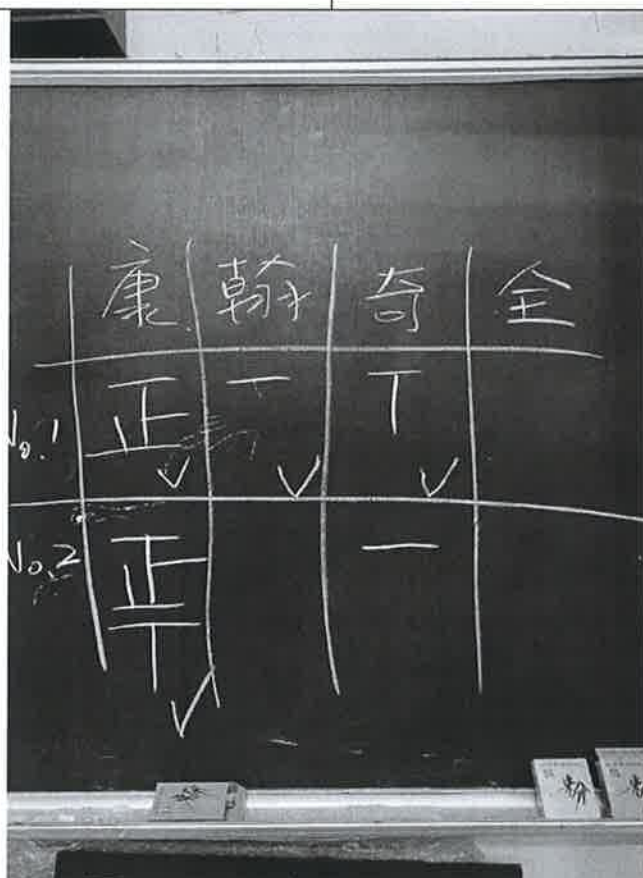 康 翰 奇 全
No.1 正 一 丅
No.2 正丅 一
粉